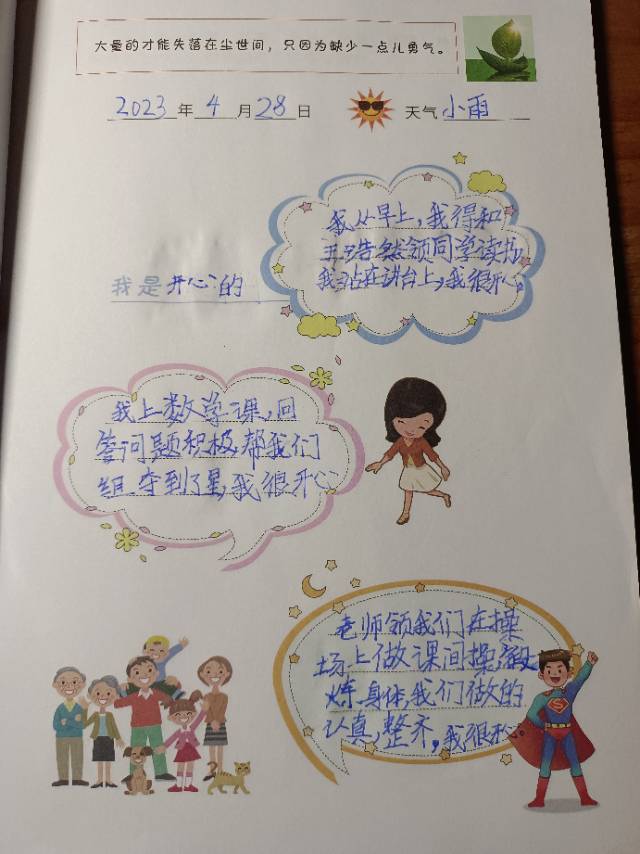 大量的才能失落在尘世间，只因为缺少一点儿勇气。
2023 年 4 月 28 日 天气 小雨
我从早上，我得和
王皓然领同学读书，
我站在讲台上，我很开心。
我是 开心的
我上数学课，回
答问题积极，帮我们
组夺到了星，我很开心
老师领我们在操
场上做课间操，锻
炼身体，我们做的
认真，整齐，我很
S